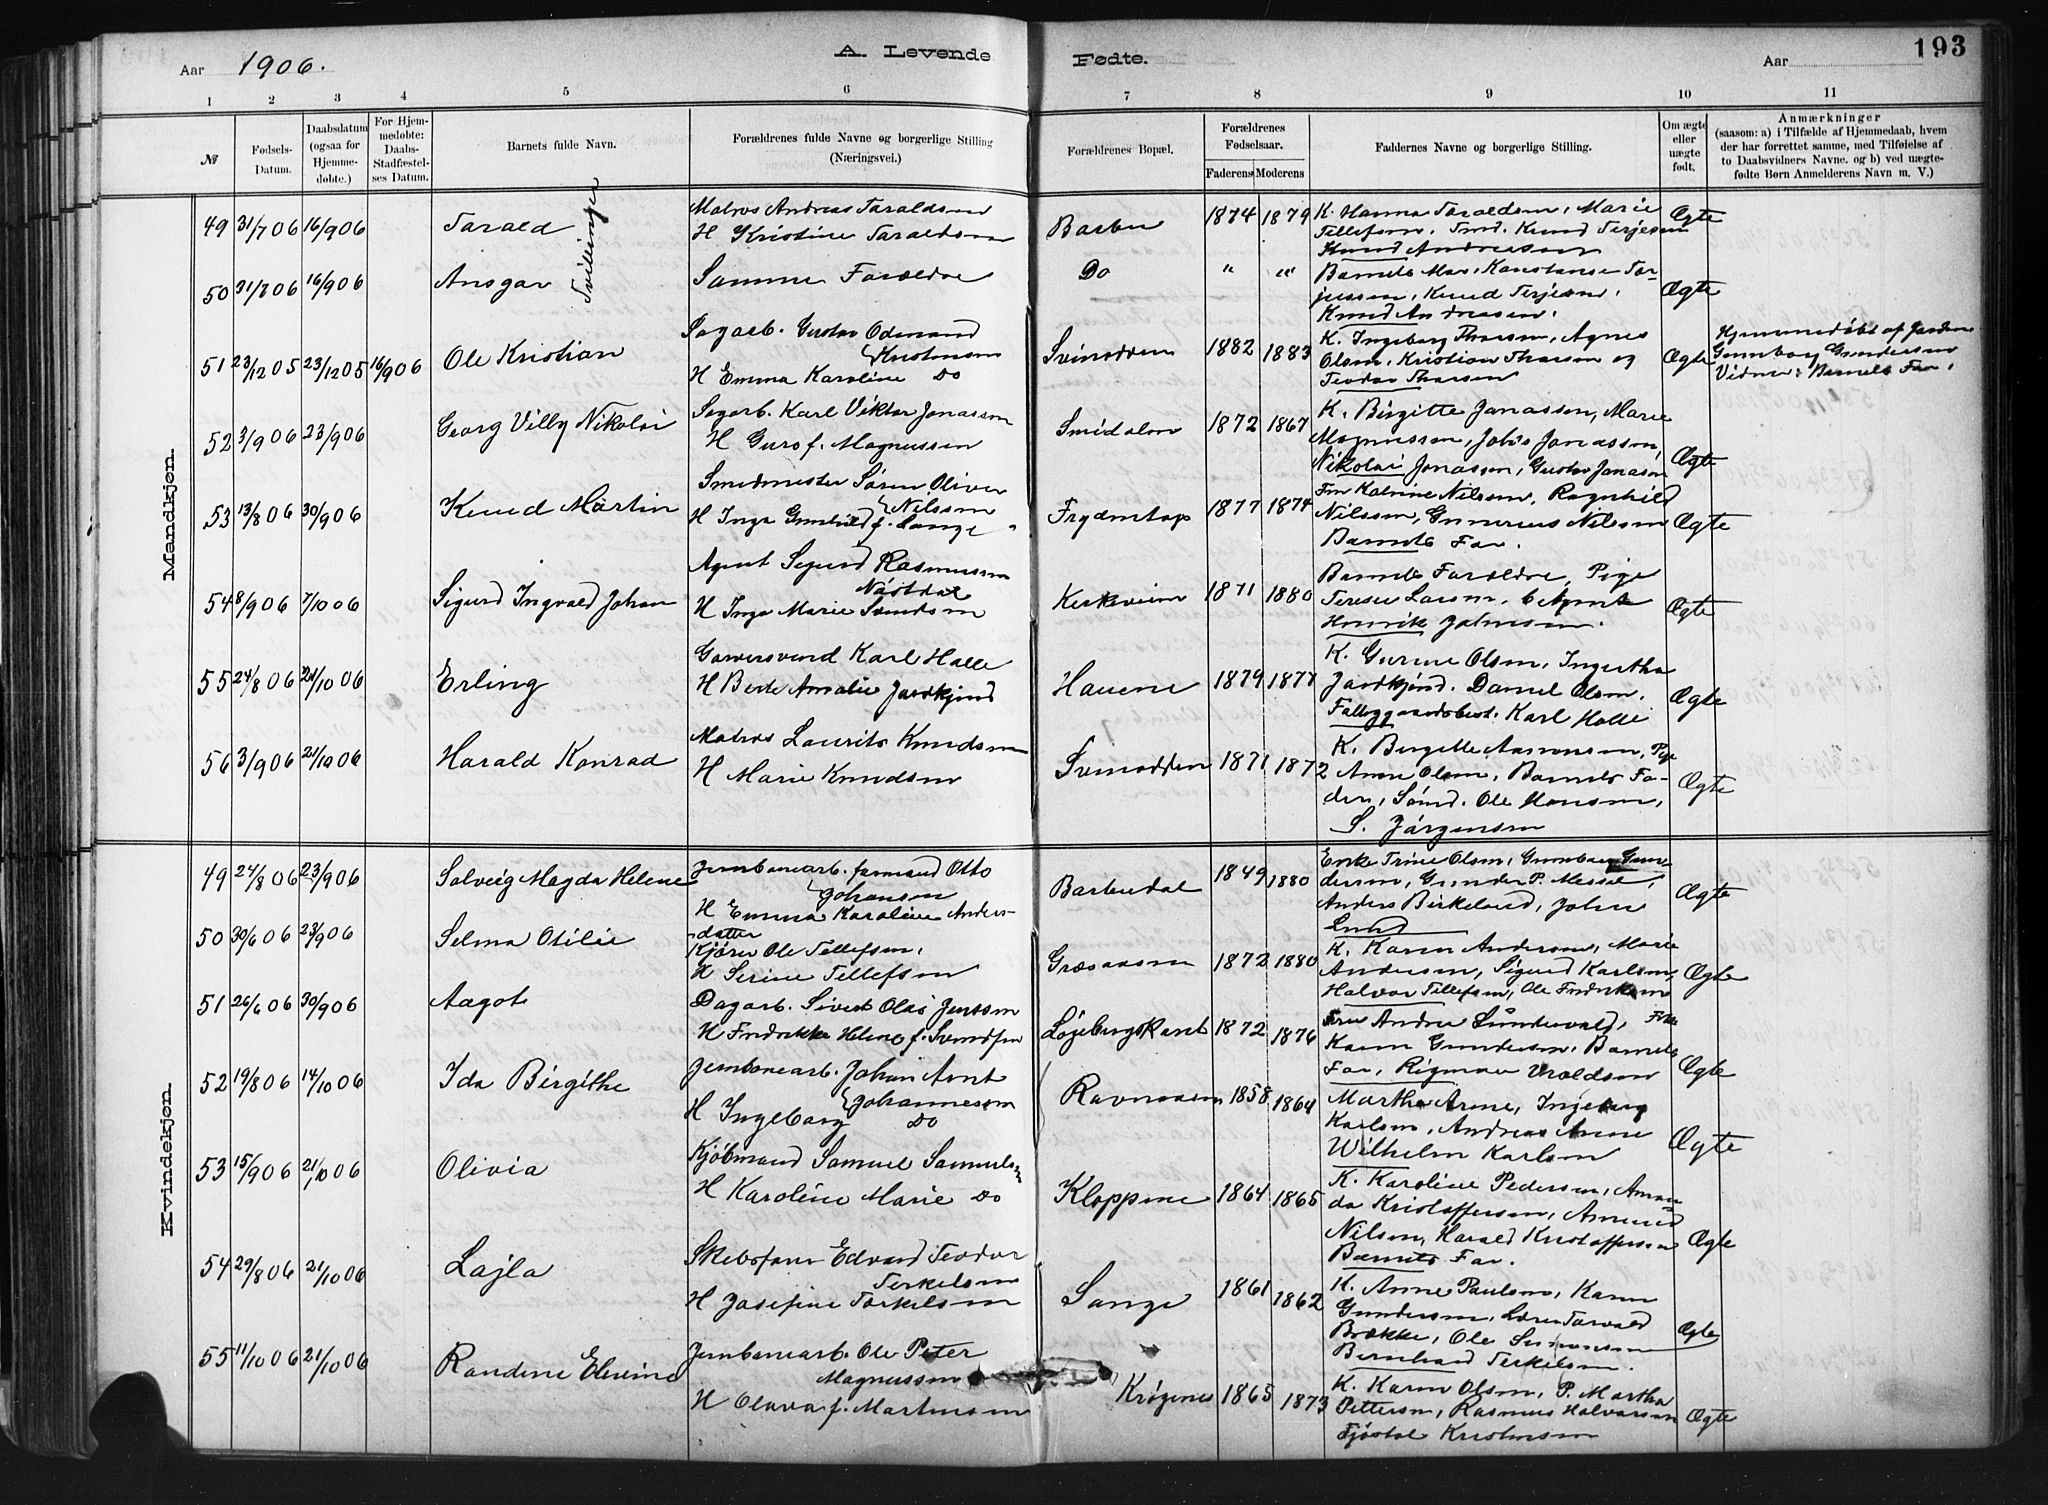 Aar 1906.
A. Levende Fødte.
Aar
193
1 2 3 4 5 6 7 8 9 10 11
№
Fødsels-Datum.
Daabsdatum (ogsaa for Hjemmedøbte.)
For Hjemmedøbte: Daabs-Stadfæstelses Datum.
Barnets fulde Navn.
Forældrenes fulde Navne og borgerlige Stilling (Næringsvei.)
Forældrenes Bopæl.
Forældrenes Fødselsaar.
Faderens Moderens
Faddernes Navne og borgerlige Stilling.
Om ægte eller uægte født.
Anmærkninger
(saasom: a) i Tilfælde af Hjemmedaab, hvem der har forrettet samme, med Tilføielse af to Daabsvidners Navne. og b) ved uægtefødte Børn Anmelderens Navn m. V.)
Mandkjøn.
49 31/7 06 16/9 06 Tarald Tvillinger
Matros Andreas Taraldsen
H Kristine Taraldsen
Barbu 1874 1879
K. Hanna Taraldsen, Marie
Tellefsen, Knud Terjesen
Knud Andreassen
Ægte
50 31/7 06 16/9 06 Ansgar
Samme Forældre
Do " "
Barnets Mor, Konstanse Tor-
jussen, Knud Terjesen,
Knud Andreasen.
Ægte
51 23/12 05 23/12 05 16/9 06 Ole Kristian
Sagarb. Gustav Odmund
Kristensen
H Emma Karoline Do
Svinodden 1882 1883
K. Ingeborg Thorsen, Agnes
Olsen, Kristian Thorsen og
Teodor Thorsen
Ægte
Hjemmedøbt af Jordm.
Gunborg Gundersen
Vidne: Barnets Far.
52 3/9 06 23/9 06 Georg Villy Nikolai
Sagarb. Karl Viktor Jonassen
H Guro f. Magnussen
Smidalen 1872 1867
K. Birgitte Jonassen, Marie
Magnussen, Johs Jonassen,
Nikolai Jonassen, Gustav Jonassen
Ægte
53 13/8 06 30/9 06 Knud Martin
Smedmester Søren Oliver
Nilssen
H Inga Gunhild f. Lange
1877 1874
Katrine Nilsen, Ragnhild
Nilssen, Gunerius Nilssen
Barnets Far.
Ægte
54 8/9 06 7/10 06 Sigurd Ingvald Johan
Agent Sigurd Rasmussen
H Inga Marie Svendsen
1871 1880
Barnets Forældre, Pige
Terese Larsen, Agent
Henrik Johnsen.
Ægte
55 24/8 06 21/10 06 Erling
Garversvend Karl Halle
H Berte Amalie
Havene 1879 1877
K. Gurine Olsen, Ingertha
Daniel Olsen,
Karl Halle
Ægte
56 3/9 06 21/10 06 Harald Konrad
Matros Laurits Knudsen
H Marie Knudsen
Svinodden 1871 1872
K. Birgitte Aaronsen, Pige
Anne Olsen, Barnets Fa-
der, Ole Hansen,
S. Jørgensen
Ægte
Kvindekjøn.
49 24/8 06 23/9 06 Solveig Magda Helene
Jernbanearb. Otto
Johansen
H Emma Karoline Anders-
datter
Barbudal 1849 1880
Enke Trine Olsen, Gunborg Gun-
dersen, Gunder P. Messel,
Anders Birkeland, John
Lund
Ægte
50 30/6 06 23/9 06 Selma Otilie
Kjører Ole Tellefsen,
H Serine Tellefsen
Græsaasen 1872 1880
K. Karen Andersen, Marie
Andersen, Sigurd Karlsen,
Halvor Tellefsen, Ole Fredriksen
Ægte
51 26/6 06 30/9 06 Aagot
Dagarb. Sivert Olas Jenssen
H Fredrikke Helene f. Svendsen
Løjebergskaret 1872 1876
Fru Andrea
Karen Gundersen, Barnets
Far,
Ægte
52 19/8 06 14/10 06 Ida Birgithe
Jernbanearb. Johan Arnt
Johannesen
H Ingeborg Do
Ravnaasen 1858 1864
Martha Arne, Ingeborg
Karlsen, Andreas Arne
Wilhelm Karlsen
Ægte
53 15/9 06 21/10 06 Olivia
Kjøbmand Samuel Samuelsen
H Karoline Marie Do
Kloppene 1864 1865
K. Karoline Pedersen, Aman-
da Kristoffersen, Amund
Nilsen, Harald Kristoffersen
Barnets Far.
Ægte
54 29/8 06 21/10 06 Lajla
Skibsfører Edvard Teodor
Terkelsen
H Josefine Torkelsen
Sange 1861 1862
K. Anne Paulsen, Karen
Gundersen, Torvald
Brække, Ole Simonsen
Bernhard Terkelsen.
Ægte
55 11/10 06 21/10 06 Randine Elvine
Jernbanearb. Ole Peter
Magnussen
H Olava f. Martinsen
Krøgenes 1865 1873
K. Karen Olsen, P. Martha
Pettersen, Rasmus Halvorsen
Tjøstol Kristensen
Ægte